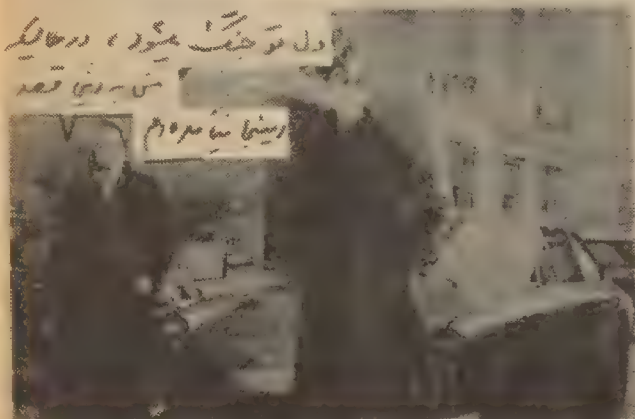 دل تو خنک میشود، درحالیکه
من به این قصد
اینجا نیامده‌ام